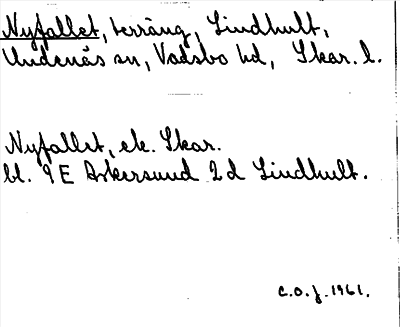 Nyfallet, terräng, Lindhult,
Undenäs sn, Vadsbo hd, Skar. l.
Nyfallet, ek. Skar.
bl. 9E Askersund 2d Lindhult.
C.O.J. 1961.